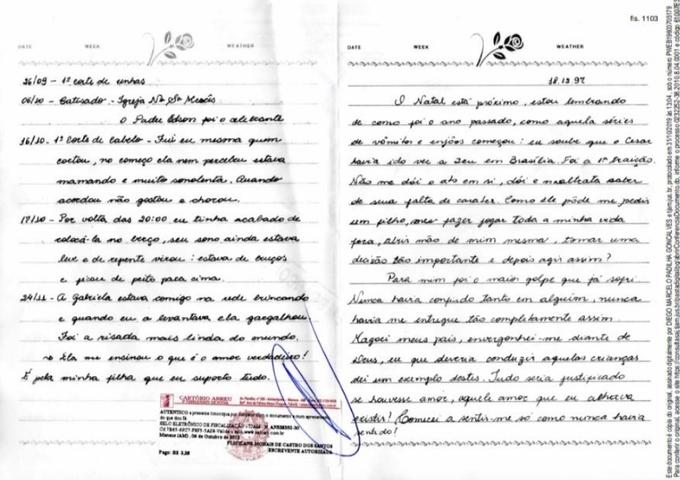 fls. 1103
DATE WEEK WEATHER
26/09 - 1º corte de unhas
06/10 - Batizado - Igreja Nª Sª Mercês
O Padre Edson foi o celebrante
16/10 - 1º Corte de Cabelo - Fui eu mesma quem
cortou, no começo ela nem percebeu estava
mamando e muito sonolenta. Quando
acordou não gostou e chorou.
17/10 - Por volta das 20:00 eu tinha acabado de
colocá-la no berço, seu sono ainda estava
leve e de repente virou: estava de bruços
e ficou de peito para cima.
24/11 - A Gabriela estava comigo na rede brincando
e quando eu a levantava ela gargalhou.
Foi a risada mais linda do mundo.
Ela me ensinou o que é o amor verdadeiro!
É pela minha filha que eu suporto tudo.
CARTÓRIO ABREU
Manaus (AM), 08 de Outubro de 2012
DE CASTRO DOS SANTOS
ESCREVENTE AUTORIZADA
Pago: R$ 3,25
DATE WEEK WEATHER
18.12.97
O Natal está próximo, estou lembrando
de como foi o ano passado, como aquela séries
de vômitos e enjôos começou: eu soube que o Cesar
havia ido ver a em Brasília. Foi a 1ª traição.
Não me dói o ato em si, dói e maltrata saber
de sua falta de carater. Como ele pôde me pedir
um filho, me fazer jogar toda a minha vida
fora, abrir mão de mim mesma, tomar uma
decisão tão importante e depois agir assim?
Para mim foi o maior golpe que já sofri.
Nunca havia confiado tanto em alguém, nunca
havia me entregue tão completamente assim.
Magoei meus pais, envergonhei-me diante de
Deus, eu que deveria conduzir aquelas crianças
dei um exemplo destes. Tudo seria justificado
se houvesse amor, aquele amor que eu achava
existir! Comecei a sentir-me só como nunca havia
sentido!